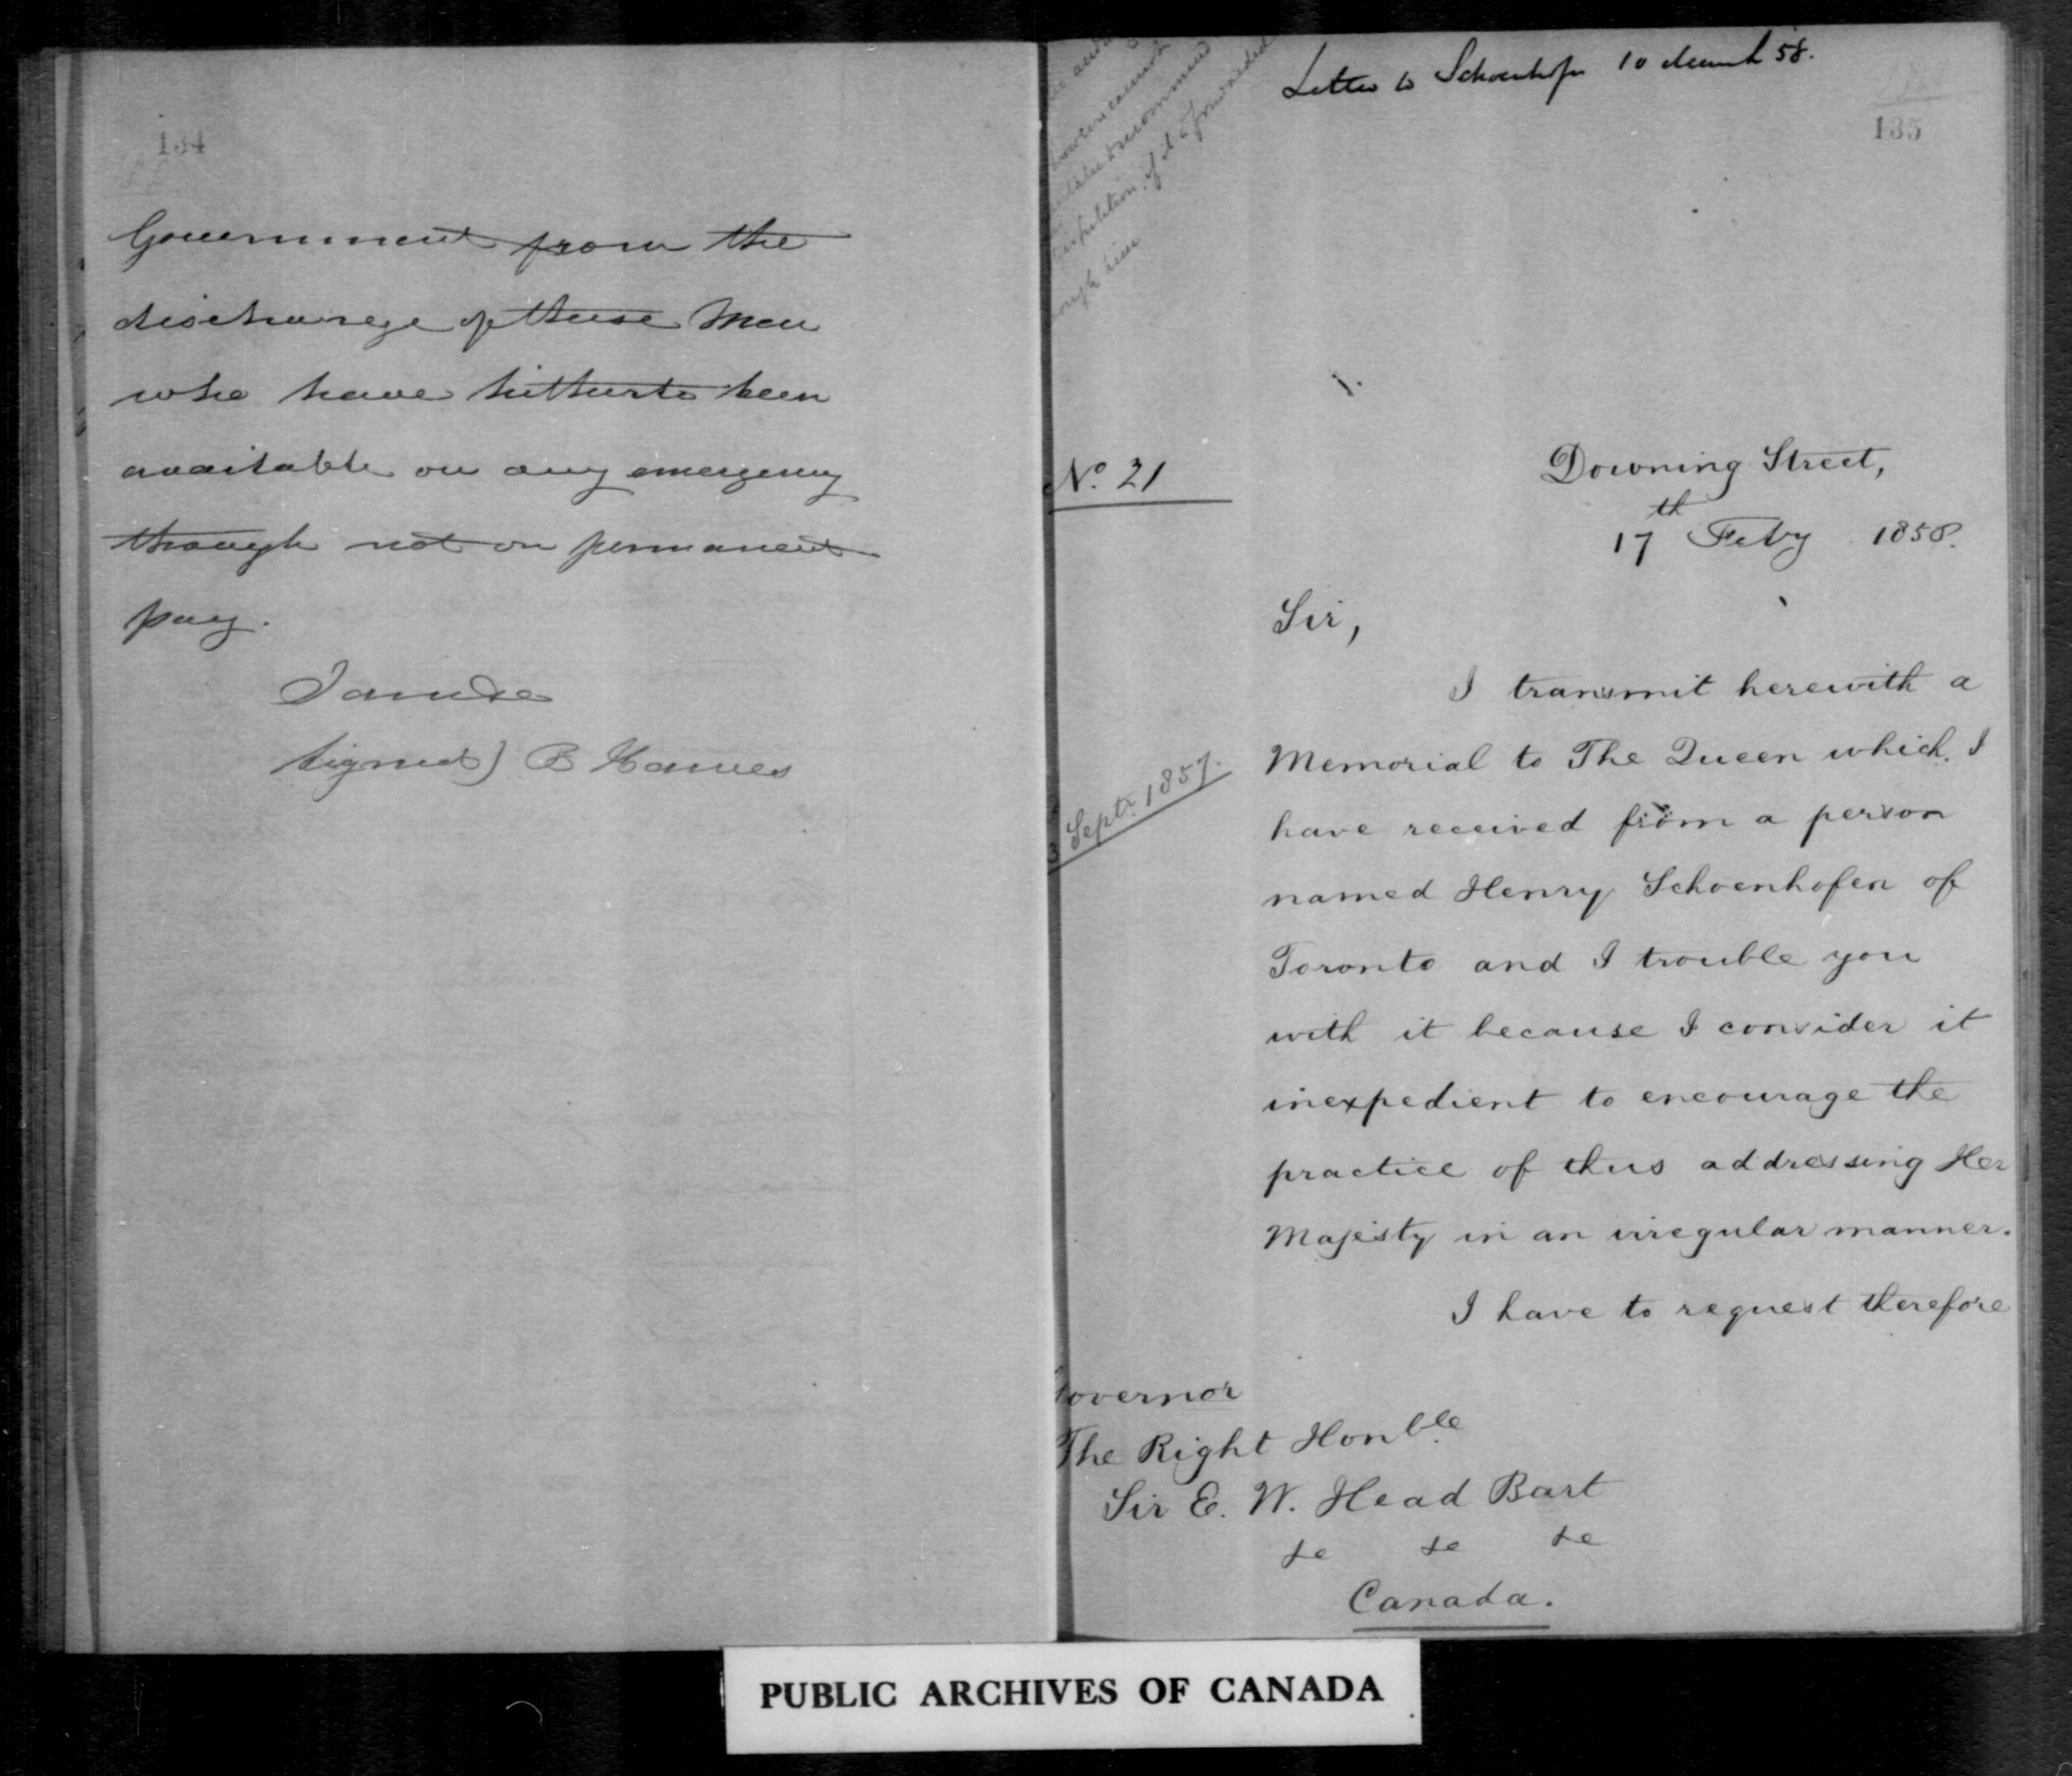 134
Government from the
discharge of these Men
who have hitherto been
available on any emergency
though not on permanent
pay.
I am &c
Signed) B Hawes
Letter to Schoenhofen 10 March 58.
135
No. 21
Downing Street,
17th Feby 1858.
Sir,
I transmit herewith a
Memorial to The Queen which I
Septr. 1857.
have received from a person
named Henry Schoenhofen of
Toronto and I trouble you
with it because I consider it
inexpedient to encourage the
practice of thus addressing Her
Majesty in an irregular manner.
I have to request therefore
overnor
The Right Honble
Sir E. W. Head Bart
&c &c &c
Canada.
PUBLIC ARCHIVES OF CANADA